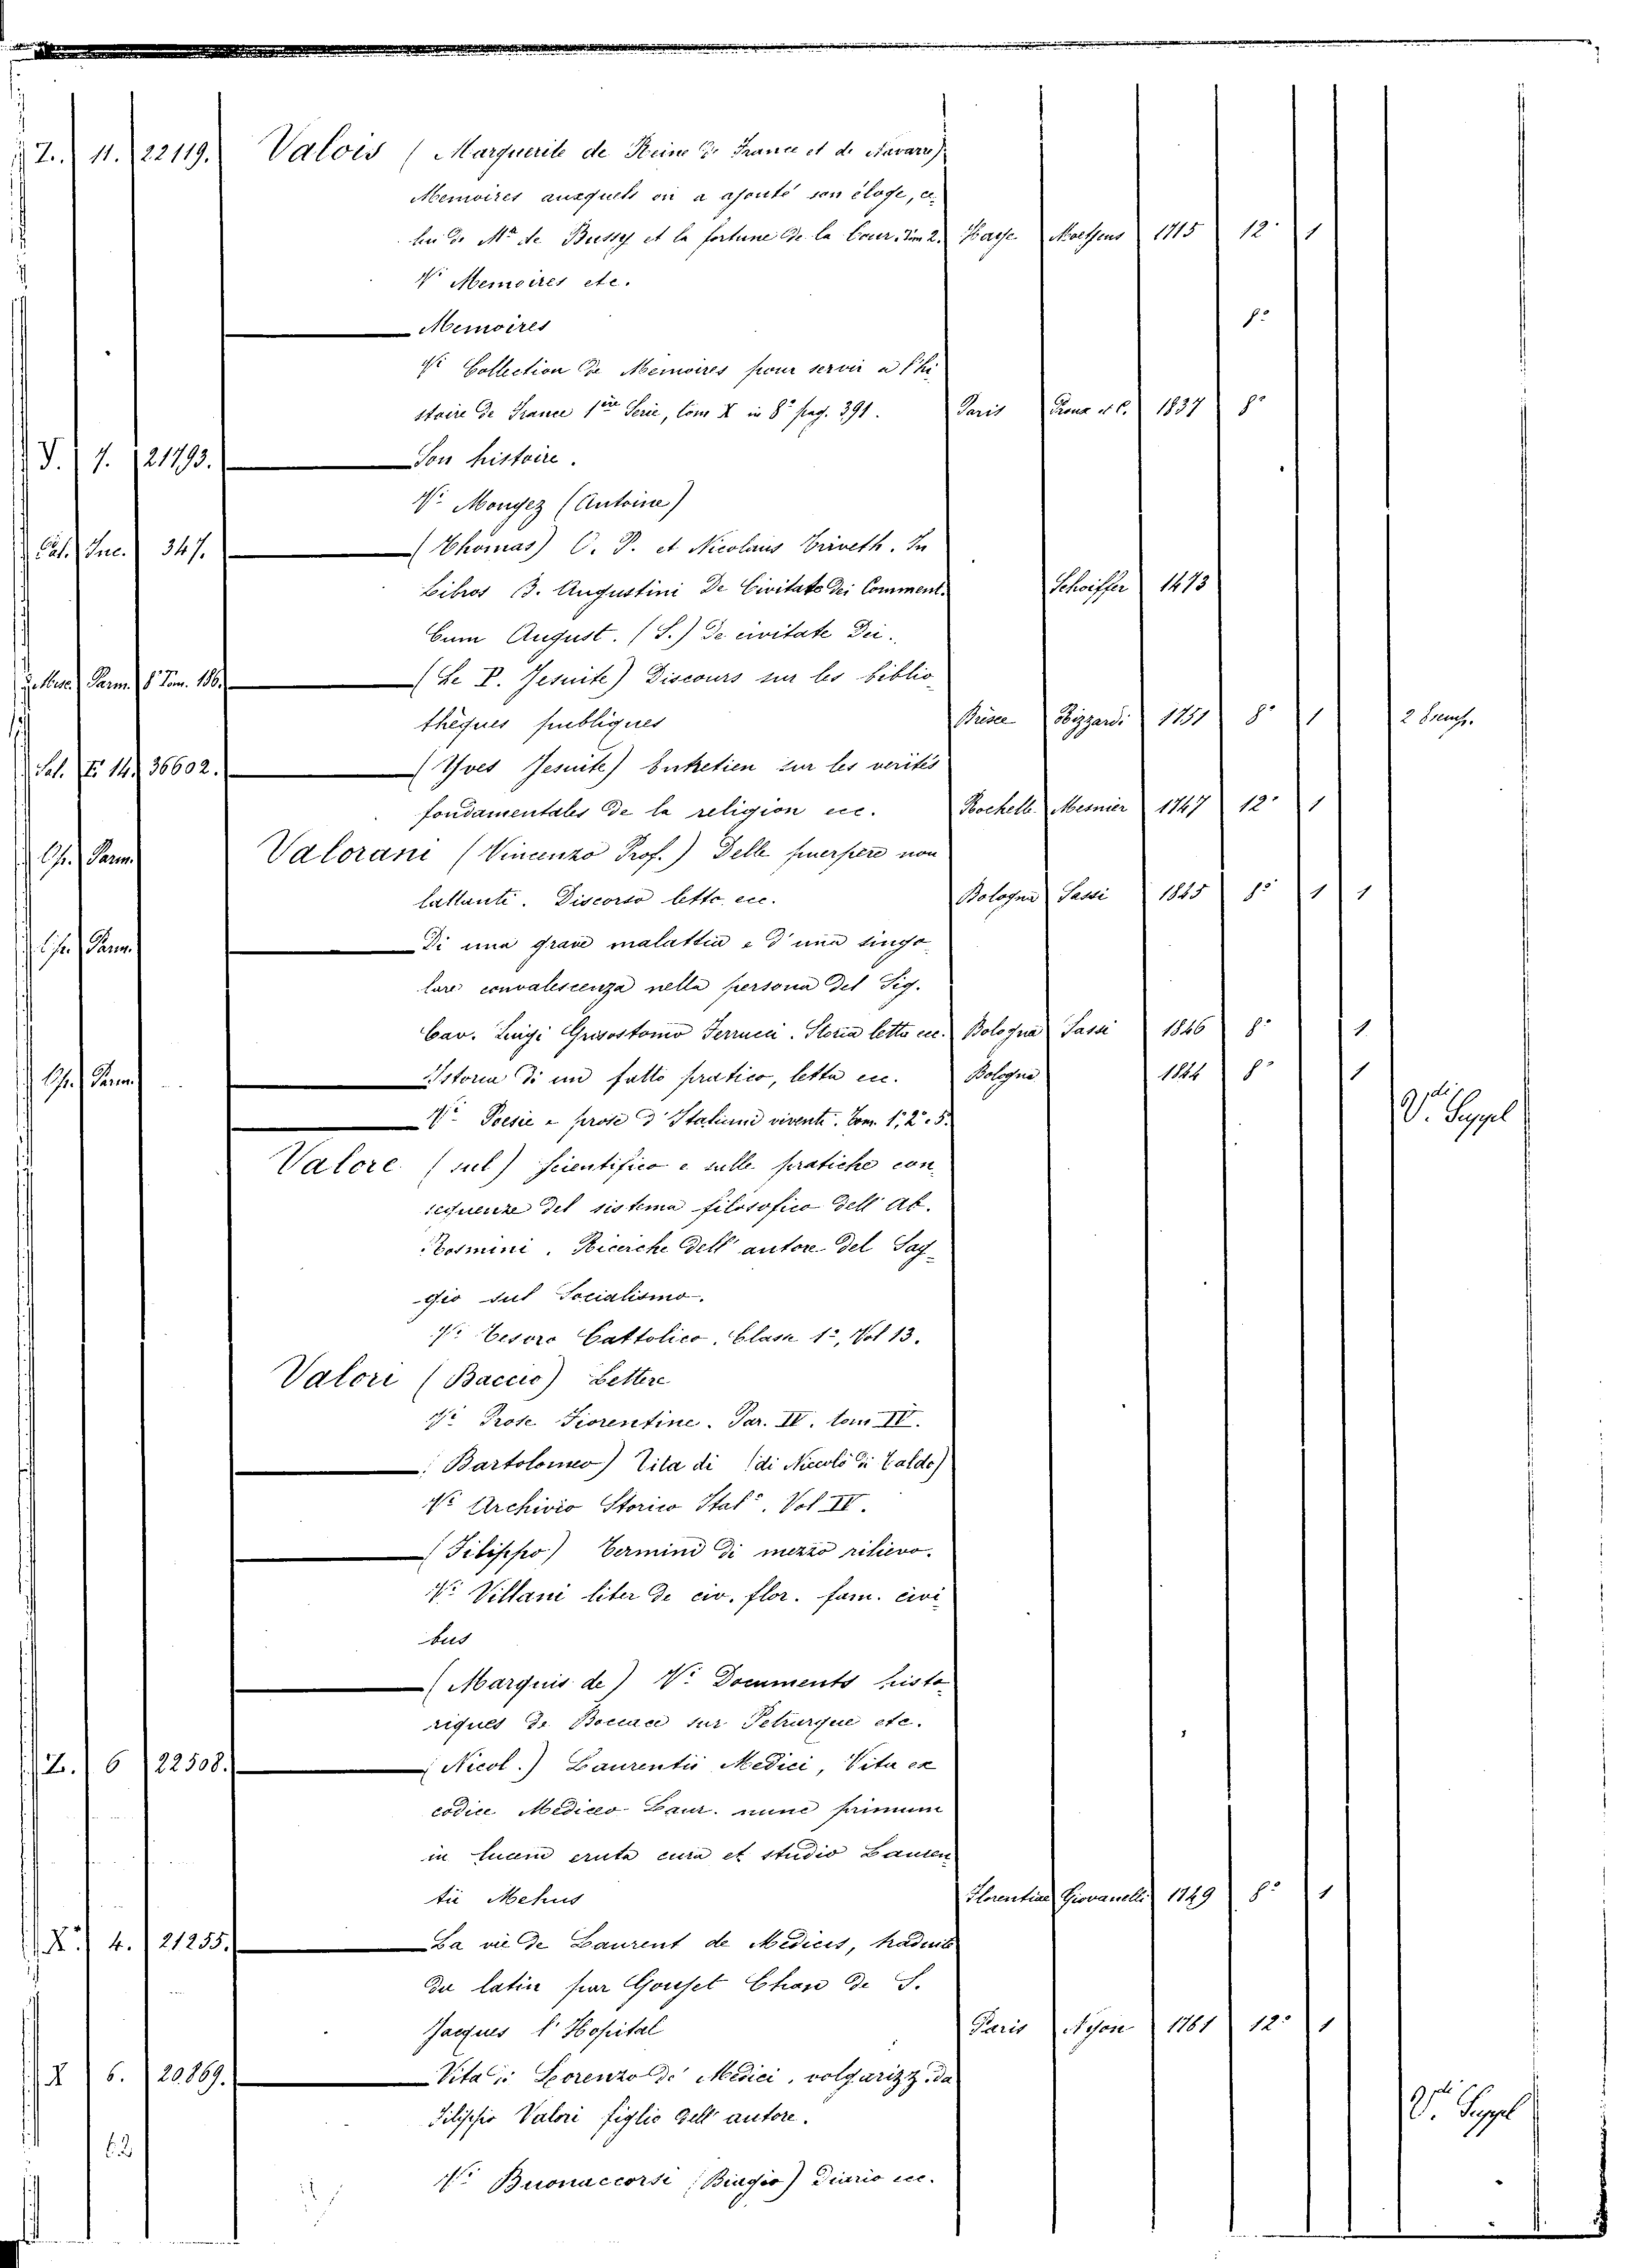 Z. 11. 22119. Valois (Marguerite de Reine de France et de Navarre)
Memoires auxquels on a ajouté son éloge, ce-
lui de Mr de Bussy et la fortune de la Cour. Tom 2. Haye Moetjens 1715 12° 1
Vi Memoires etc.
Memoires 8°
Vi Collection de Memoires pour servir a l'hi-
stoire de France 1ère Serie, tom X in 8° pag. 391. Paris 1837 8°
V. 7. 21793. Son histoire.
Vi Mongez (Antoine)
Cat. Inc. 347. (Thomas) O. P. et Nicolaus Triveth. In
Libros B. Augustini De Civitate Dei Comment.  Schoiffer 1473
Cum August. (S.) De civitate Dei.
Parm. 8° Tom. 186. (Le P. Jesuite) Discours sur les biblio-
thèques publiques Brisce Rizzardi 1751 8° 1 2 Esemp.
Sal. 14. 36602. (Yves Jesuite) Entretien sur les verités
fondamentales de la religion ec. Rochelle Mesnier 1747 12° 1
Op. Parm. Valorani (Vincenzo Prof.) Delle puerpere non
lattanti. Discorso letto ec. Bologna Sassi 1845 8° 1 1
Op. Parm. Di una grave malattia e d'una singo-
lare convalescenza nella persona del Sig.
Cav. Luigi Grisostomo Ferrucci. Storia letta ec. Bologna Sassi 1846 8° 1
Op. Parm. Istoria di un fatto pratico, letta ec. Bologna 1844 8° 1
Vi Poesie e prose d'Italiani viventi. Tom. 1°, 2° e 5° Vdi Suppl
Valore (sul) scientifico e sulle pratiche con-
seguenze del sistema filosofico dell'Ab.
Rosmini. Ricerche dell'autore del Sag-
gio sul Socialismo.
Vi Tesoro Cattolico, Classe 1a, Vol 13.
Valori (Baccio) Lettere
Vi Prose Fiorentine. Par. IV. tom IV.
(Bartolomeo) Vita di (di Niccolò di Taldo)
Vi Archivio Storico Ital°. Vol IV.
(Filippo) Termini di mezzo rilievo.
Vi Villani liber de civ. flor. fam. civi-
bus
(Marquis de) Vi Documents histo-
riques de Boccace sur Petrarque etc.
Z. 6 22508. (Nicol.) Laurentii Medici, Vita ex
codice Mediceo-Laur. nunc primum
in lucem eruta cura et studio Lauren-
tii Mehus Florentiae Giovanelli 1749 8° 1
X. 4. 21255. La vie de Laurent de Medicis, traduite
du latin par Goujet Chan de S.
Jacques l'Hopital Paris Nyon 1761 12° 1
X 6. 20869. Vita di Lorenzo de' Medici, volgarizz. da
Filippo Valori figlio dell'autore. Vdi Suppl
62
Vi Buonaccorsi (Biagio) Diario ec.